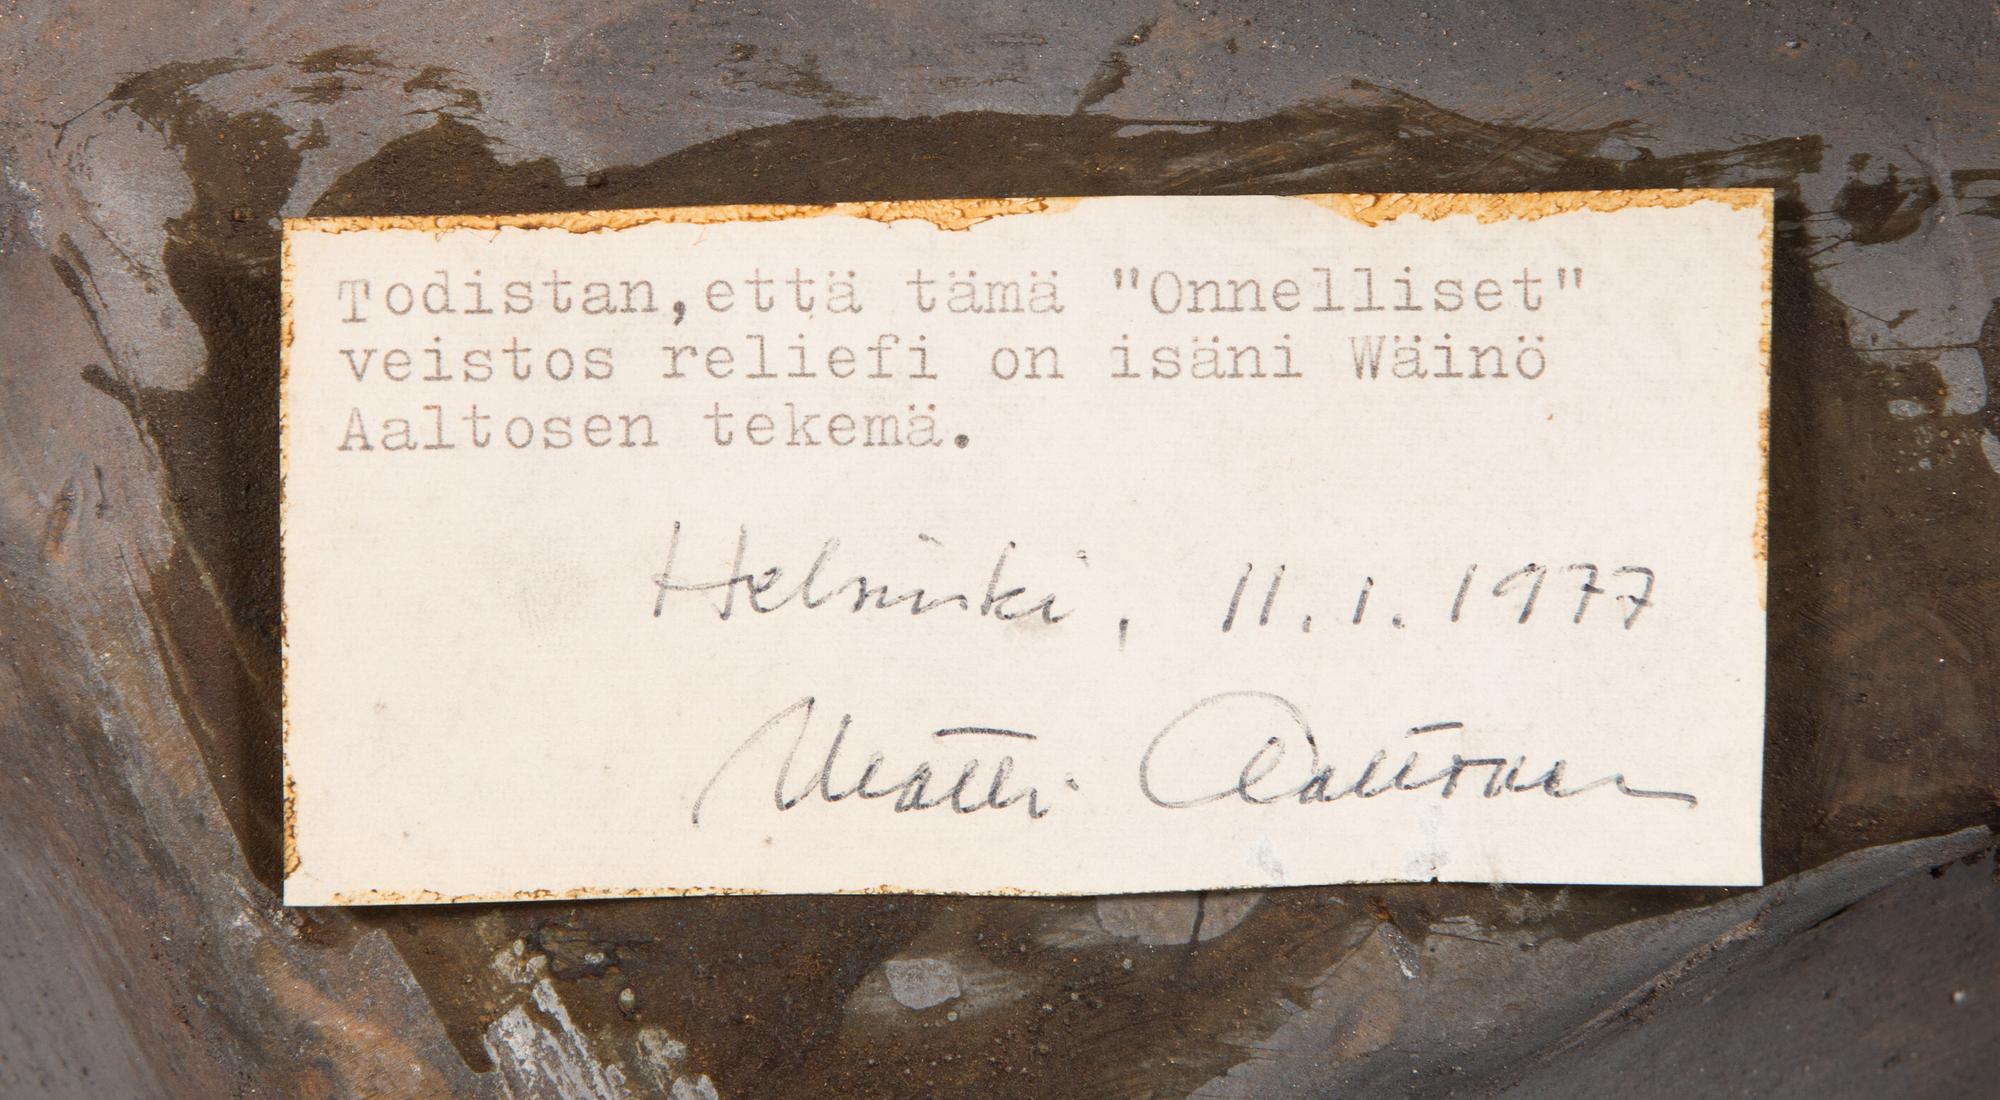 Todistan,että tämä "Onnelliset"
veistos reliefi on isäni Wäinö
Aaltosen tekemä.
Helsinki, 11.1.1977
Matti Aaltonen